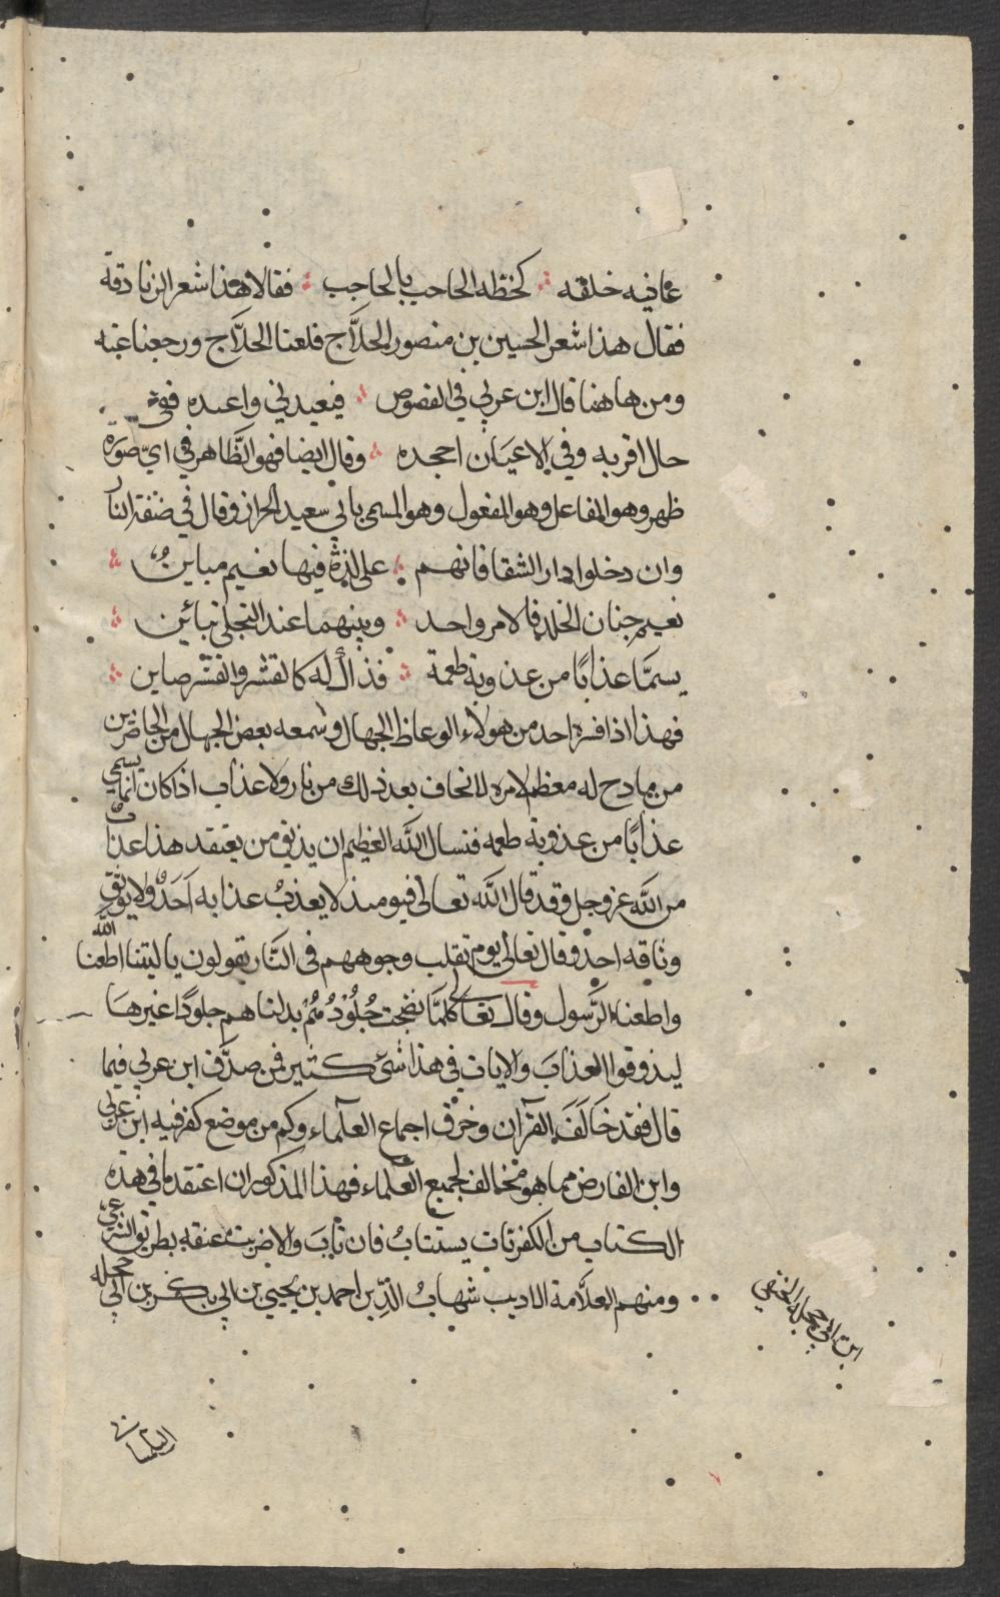 عاينه خلقه كلحظه الحاجب بالحاجب فقالا هذا شعر الزنادقة
فقال هذا شعر الحسين بن منصور الحلاّج فلعنا الحلاّج ورجعنا عنه
ومن هاهنا قال ابن عربي في الفصوص فيعبدني واعبده ففي
حال اقربه وفي الاعيان اجحده وقال ايضا فهو الظاهر في ايّ صورة
ظهر وهو الفاعل وهو المفعول وهو المسمى بابي سعيد الخراز وقال في صفة النار
وان دخلوا دار الشقا فانهم على لذة فيها نعيم مباين
نعيم جنان الخلد فالامر واحد وبينهما عند التجلي تبائن
يسمّا عذابًا من عذوبة طعمة فذاك له كالقشر والقشر صاين
فهذا اذا فسره احد من هولاء الوعاظ الجهال وسمعه بعض الجهال من الحاضرين
من مادح له معظم لامره لا نخاف بعد ذلك من نار ولا عذاب اذا كان انما يسمي
عذابًا من عذوبة طعمه فنسال اللّه العظيم ان يذيق من يعتقد هذا عذاب
من اللّه عز وجل وقد قال اللّه تعالى فيومئذ لا يعذبُ عذابه اَحَدٌ ولا يوثق
وثاقه احد وقال تعالى يوم تقلب وجوههم في النّار يقولون ياليتنا اطعنا الله
واطعنا الرّسول وقال تعالى كلمّا نضجت جُلُودُهُم بدلناهم جلودًا غيرها
ليذوقوا العذابَ والايات في هذا شئ كثير فمن صدّق ابن عربي فيما
قال فقد خالَفَ القرآن وخرق اجماع العلماء وكم من موضع كفر فيه ابن عربي
وابن الفارض مما هو مخالف لجميع العلماء فهذا المذكور ان اعتقد ما في هذه
الكتاب من الكفريّات يستتابُ فان تابَ والا ضربت عنقه بطريق الشرعي
ومنهم العلاّمة الاديب شهابُ الدّين احمد بن يحيى بن ابي بكر بن ابي حجله
ابن ابي حجلة الحنفي
التلمسان